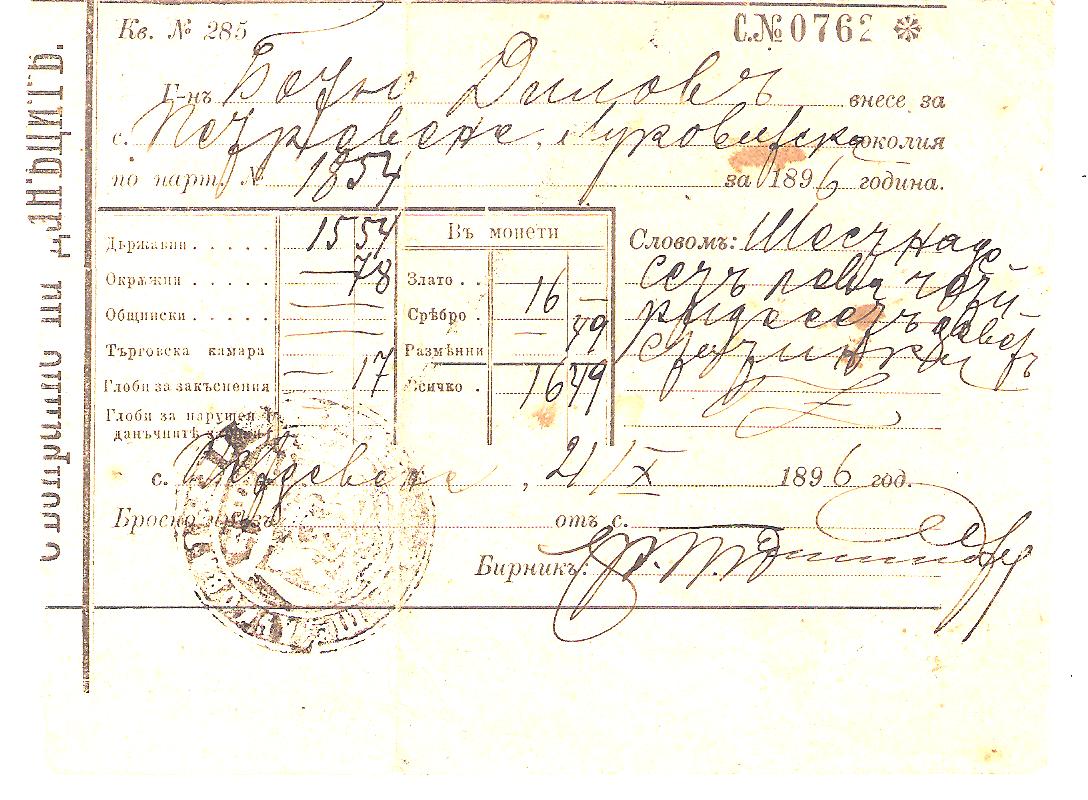 Кв. № 285
С.№ 0762
Г-нъ Диловъ внесе за
с. Петревене, Луковитска околия
по парт. № 1854 за 1896 година.
Държавни 15 54
Окръжни — 78
Общински
Търговска камара
Глоби за закъснения — 17
Глоби за нарушен.
данъчнитѣ
Въ монети
Злато
Срѣбро 16 —
Размѣнни — 49
Всичко 16 49
Словомъ: Шестнаде
сетъ лева чети
ридесетъ девет
стотинки
с. Петревене, 21/X 1896 год.
отъ с.
Бирникъ:
данъцитѣ.